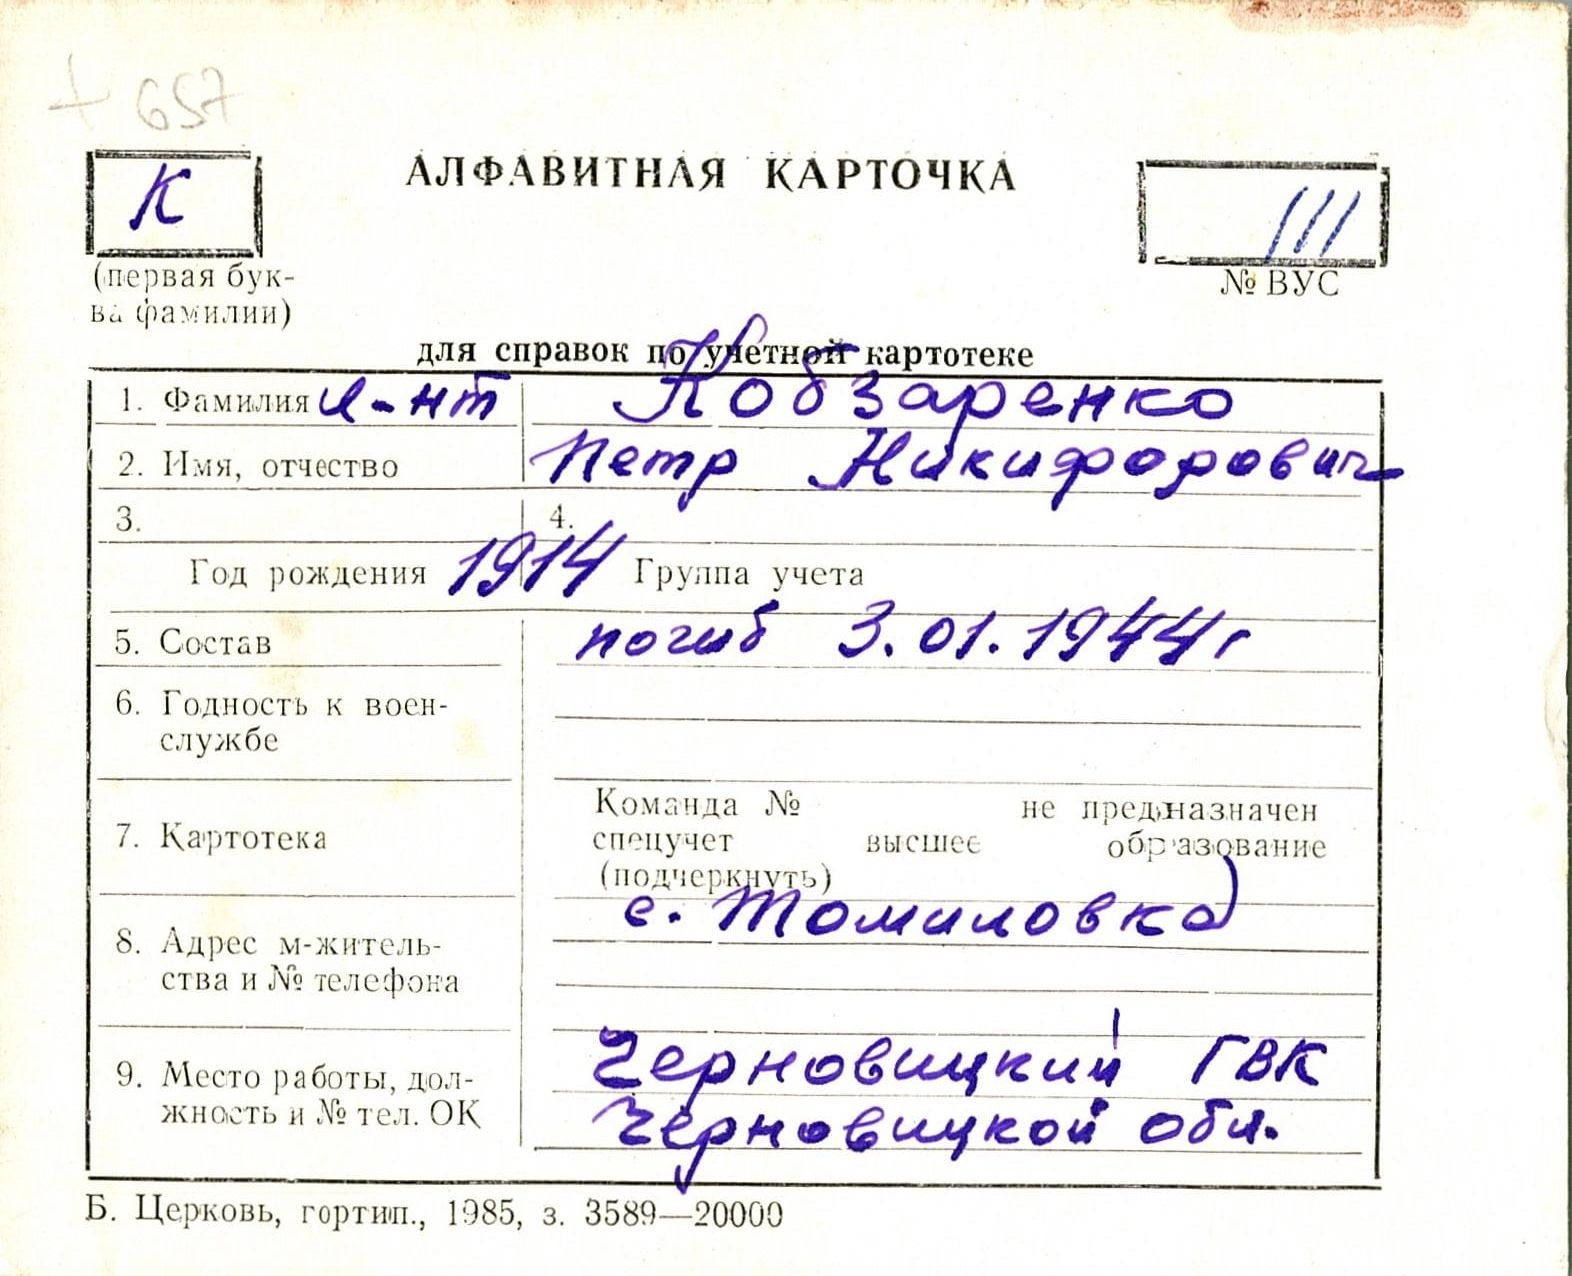 + 657
К
АЛФАВИТНАЯ КАРТОЧКА
111
(первая бук-
ва фамилии)
№ ВУС
для справок по учетной картотеке
1. Фамилия л-нт Кобзаренко
2. Имя, отчество Петр Никифорович
3. 4.
Год рождения 1914 Группа учета
5. Состав погиб 3.01.1944г
6. Годность к воен-
службе
Команда № не предназначен
7. Картотека спецучет высшее образование
(подчеркнуть)
с. Томиловка
8. Адрес м-житель-
ства и № телефона
Черновицкий ГВК
9. Место работы, дол-
жность и № тел. ОК Черновицкой обл.
Б. Церковь, гортип., 1985, з. 3589—20000